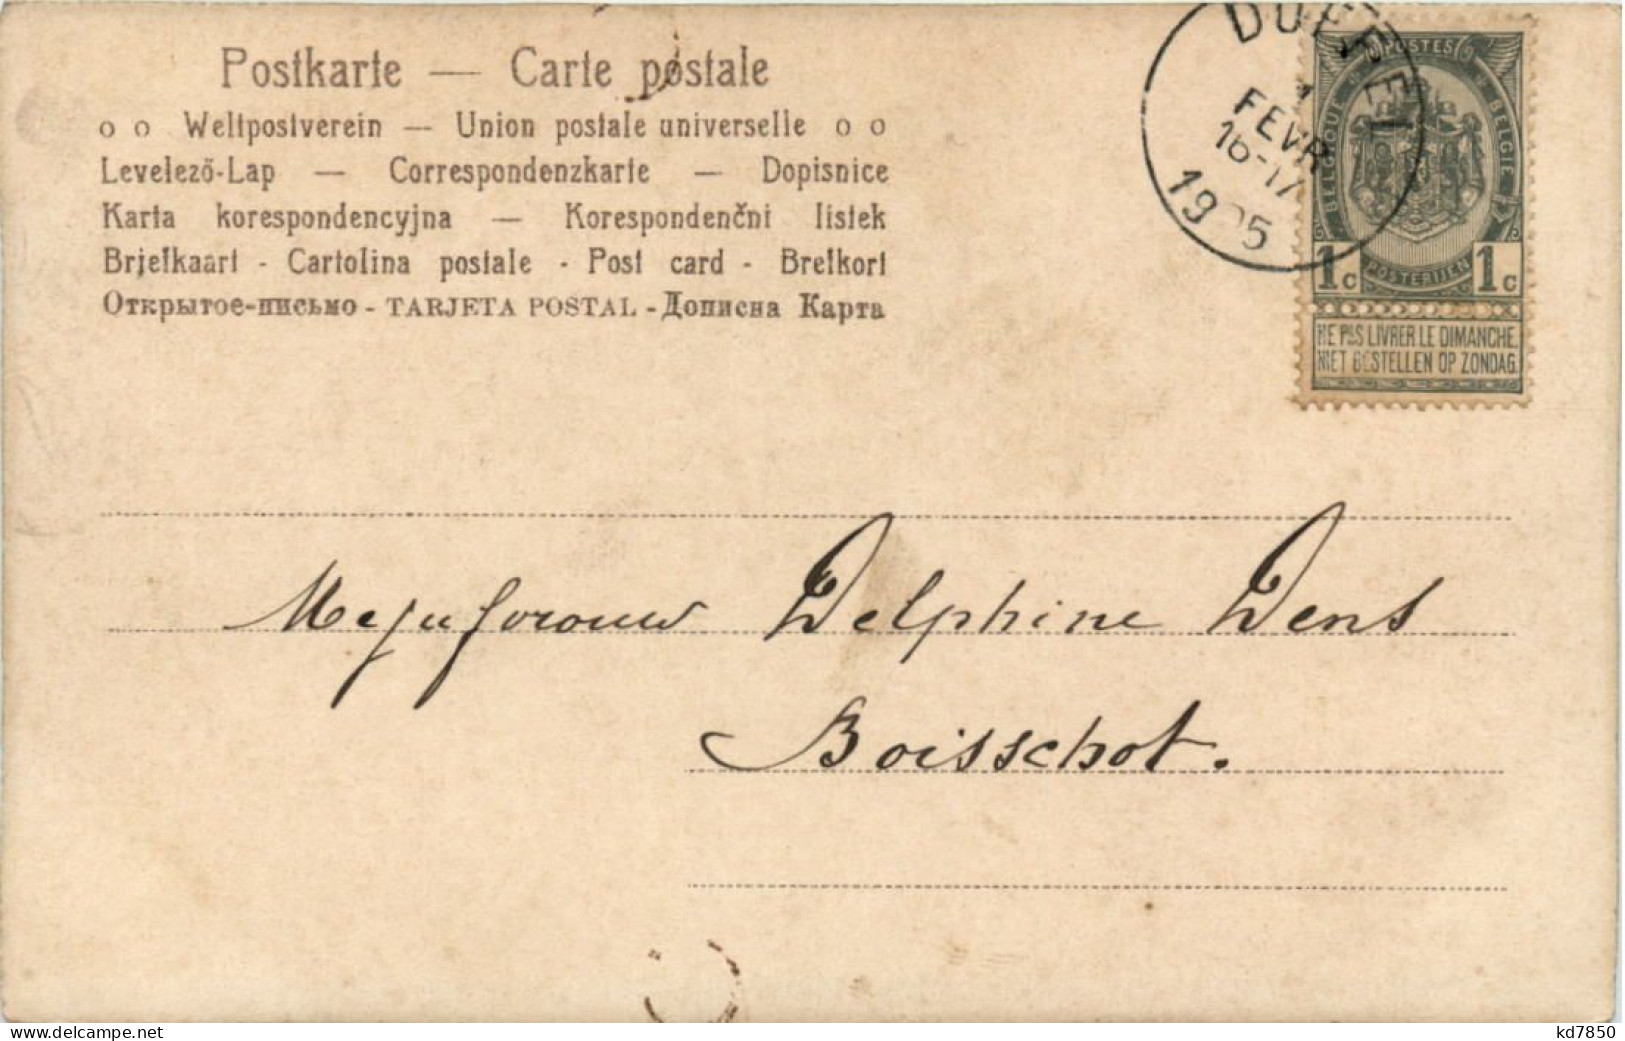 Postkarte — Carte postale
o o Weltpostverein — Union postale universelle o o
Levelező-Lap — Correspondenzkarte — Dopisnice
Karta korespondencyjna — Korespondenčni listek
Brjefkaart - Cartolina postale - Post card - Brefkort
Открытое-письмо - TARJETA POSTAL - Дописна Карта
DUFFEL
1
FEVR
16-17
1905
POSTES
BELGIQUE BELGIE
POSTERIJEN
1c 1c
NE PAS LIVRER LE DIMANCHE.
NIET BESTELLEN OP ZONDAG.
Mejufvrouw Delphine Dens
Boisschot.
www.delcampe.net
kd7850